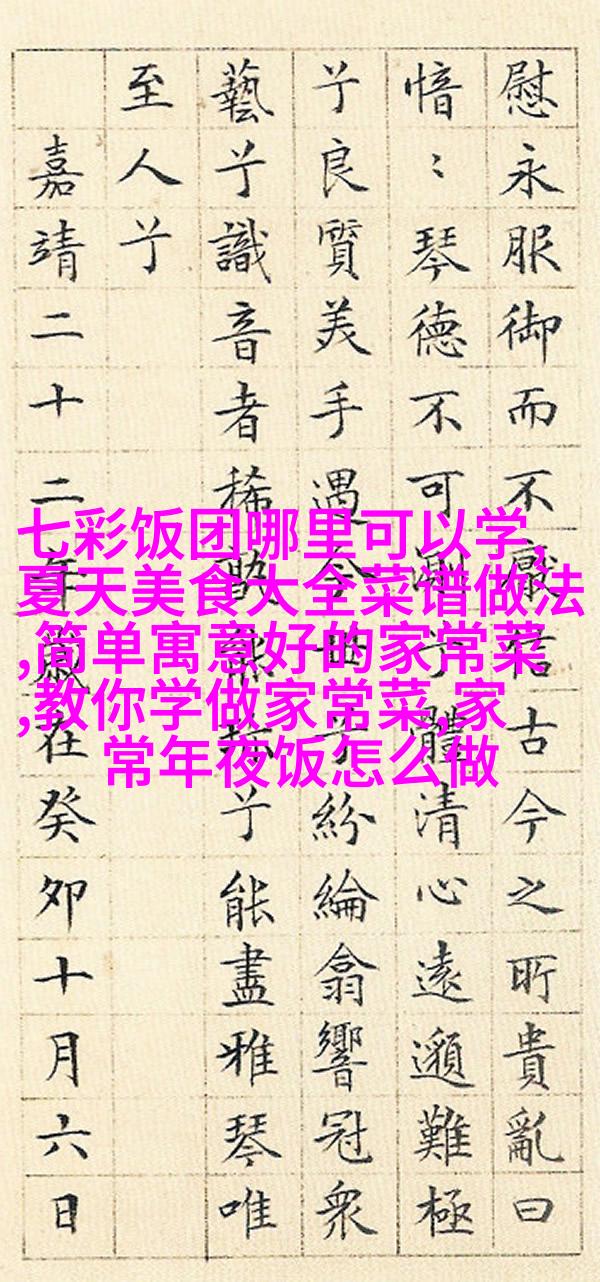 慰永服御而不厭信古今之所貴亂曰
愔〻琴德不可測兮體清心遠邈難極
兮良質美手遇今世兮紛綸翕響冠眾
藝兮識音者稀孰能珍兮能盡雅琴唯
至人兮
嘉靖二十二年歲在癸卯十月六日
七彩饭团哪里可以学,
夏天美食大全菜谱做法
,简单寓意好的家常菜
,教你学做家常菜,家
常年夜饭怎么做